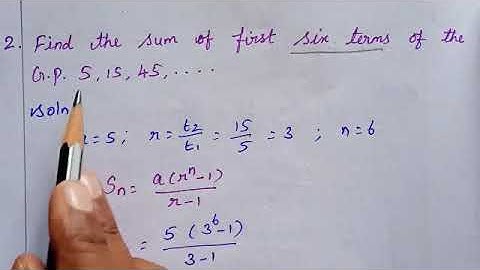 2. Find the sum of first six terms of the
G.P. 5, 15, 45, ....
Soln
a = 5 ; r = t₂/t₁ = 15/5 = 3 ; n = 6
Sₙ = a(rⁿ-1)/r-1
= 5 (3⁶-1)/3-1